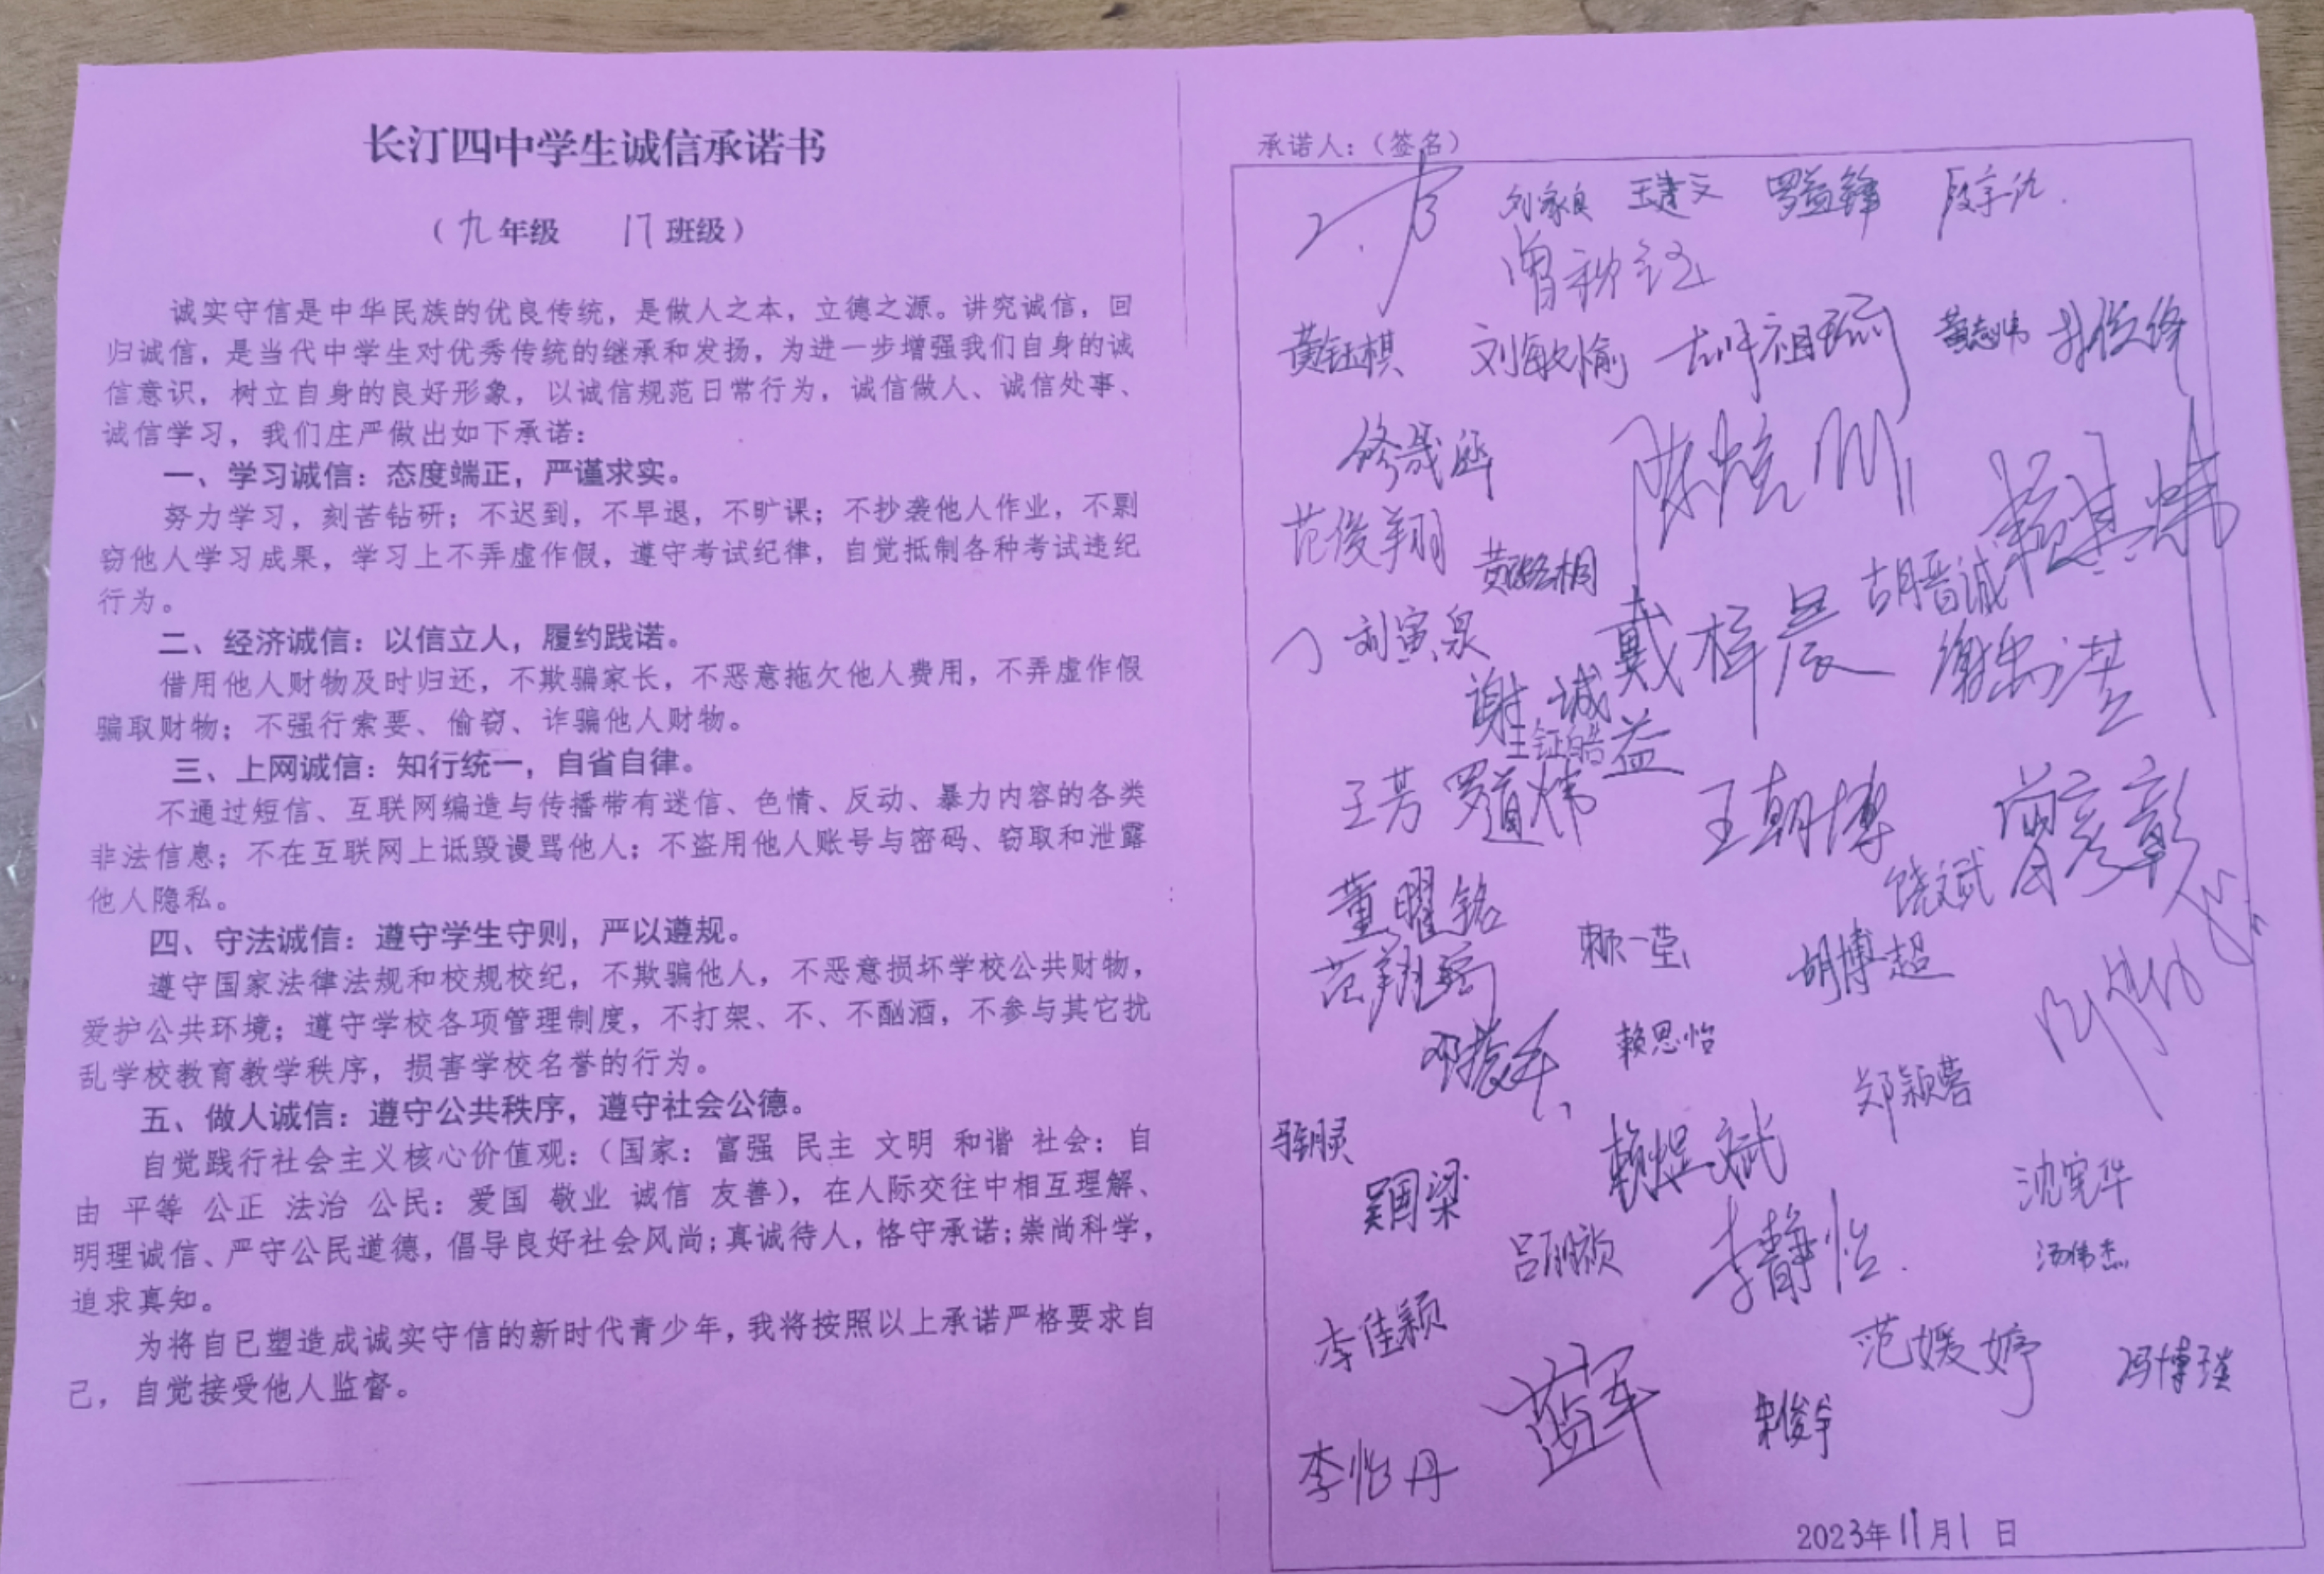 长汀四中学生诚信承诺书
（九年级 17班级）
诚实守信是中华民族的优良传统，是做人之本，立德之源。讲究诚信，回
归诚信，是当代中学生对优秀传统的继承和发扬，为进一步增强我们自身的诚
信意识，树立自身的良好形象，以诚信规范日常行为，诚信做人、诚信处事、
诚信学习，我们庄严做出如下承诺：
一、学习诚信：态度端正，严谨求实。
努力学习，刻苦钻研；不迟到，不早退，不旷课；不抄袭他人作业，不剽
窃他人学习成果，学习上不弄虚作假，遵守考试纪律，自觉抵制各种考试违纪
行为。
二、经济诚信：以信立人，履约践诺。
借用他人财物及时归还，不欺骗家长，不恶意拖欠他人费用，不弄虚作假
骗取财物；不强行索要、偷窃、诈骗他人财物。
三、上网诚信：知行统一，自省自律。
不通过短信、互联网编造与传播带有迷信、色情、反动、暴力内容的各类
非法信息；不在互联网上诋毁谩骂他人；不盗用他人账号与密码、窃取和泄露
他人隐私。
四、守法诚信：遵守学生守则，严以遵规。
遵守国家法律法规和校规校纪，不欺骗他人，不恶意损坏学校公共财物，
爱护公共环境；遵守学校各项管理制度，不打架、不、不酗酒，不参与其它扰
乱学校教育教学秩序，损害学校名誉的行为。
五、做人诚信：遵守公共秩序，遵守社会公德。
自觉践行社会主义核心价值观：（国家：富强 民主 文明 和谐 社会：自
由 平等 公正 法治 公民：爱国 敬业 诚信 友善），在人际交往中相互理解、
明理诚信、严守公民道德，倡导良好社会风尚；真诚待人，恪守承诺；崇尚科学，
追求真知。
为将自已塑造成诚实守信的新时代青少年，我将按照以上承诺严格要求自
己，自觉接受他人监督。
承诺人：（签名）
刘家良 王建文 罗益锋
黄钰棋 刘敏愉 黄志伟
修晟
范俊翔
胡晋诚
刘寅泉 戴梓晨
谢诚益
王钲皓
王芳 罗道炜 王朝博 曾彦彰
董曜铭 饶文斌
赖一莹 胡博超
赖思怡
郑颖蓉
赖煜斌
吴国梁 沈宪华
李静怡
汤伟杰
李佳颖
范媛婷
蓝军
李怡丹
2023年11月1日